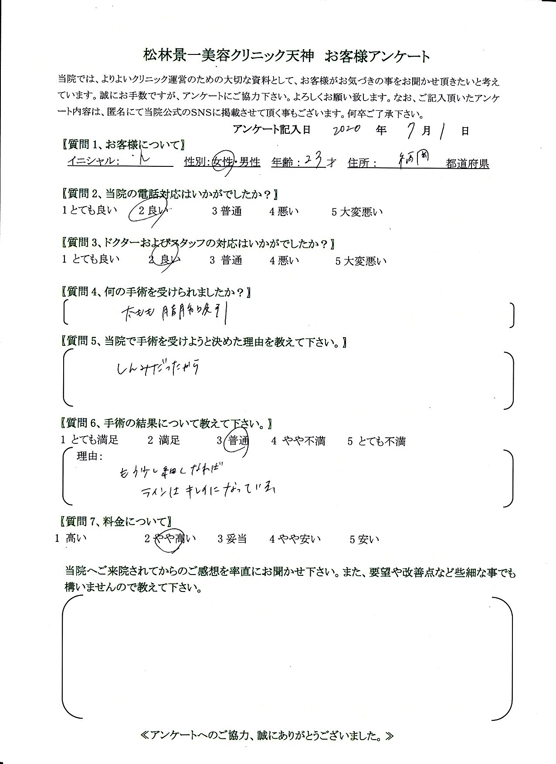 松林景一美容クリニック天神 お客様アンケート
当院では、よりよいクリニック運営のための大切な資料として、お客様がお気づきの事をお聞かせ頂きたいと考え
ています。誠にお手数ですが、アンケートにご協力下さい。よろしくお願い致します。なお、ご記入頂いたアンケ
ート内容は、匿名にて当院公式のSNSに掲載させて頂く事もございます。何卒ご了承下さい。
アンケート記入日 2020 年 7月 1 日
〖質問1、お客様について〗
イニシャル: 性別:女性・男性 年齢:23才 住所: 福岡 都道府県
〖質問2、当院の電話対応はいかがでしたか?〗
1とても良い 2良い 3普通 4悪い 5大変悪い
〖質問3、ドクターおよびスタッフの対応はいかがでしたか?〗
1 とても良い 2 良い 3 普通 4 悪い 5 大変悪い
〖質問4、何の手術を受けられましたか?〗
太もも 脂肪吸引
〖質問5、当院で手術を受けようと決めた理由を教えて下さい。〗
しんみだったから
〖質問6、手術の結果について教えて下さい。〗
1 とても満足 2 満足 3 普通 4 やや不満 5 とても不満
理由:
もう少し細くなれば
ラインはキレイになっている
〖質問7、料金について〗
1 高い 2 やや高い 3 妥当 4 やや安い 5 安い
当院へご来院されてからのご感想を率直にお聞かせ下さい。また、要望や改善点など些細な事でも
構いませんので教えて下さい。
≪アンケートへのご協力、誠にありがとうございました。≫